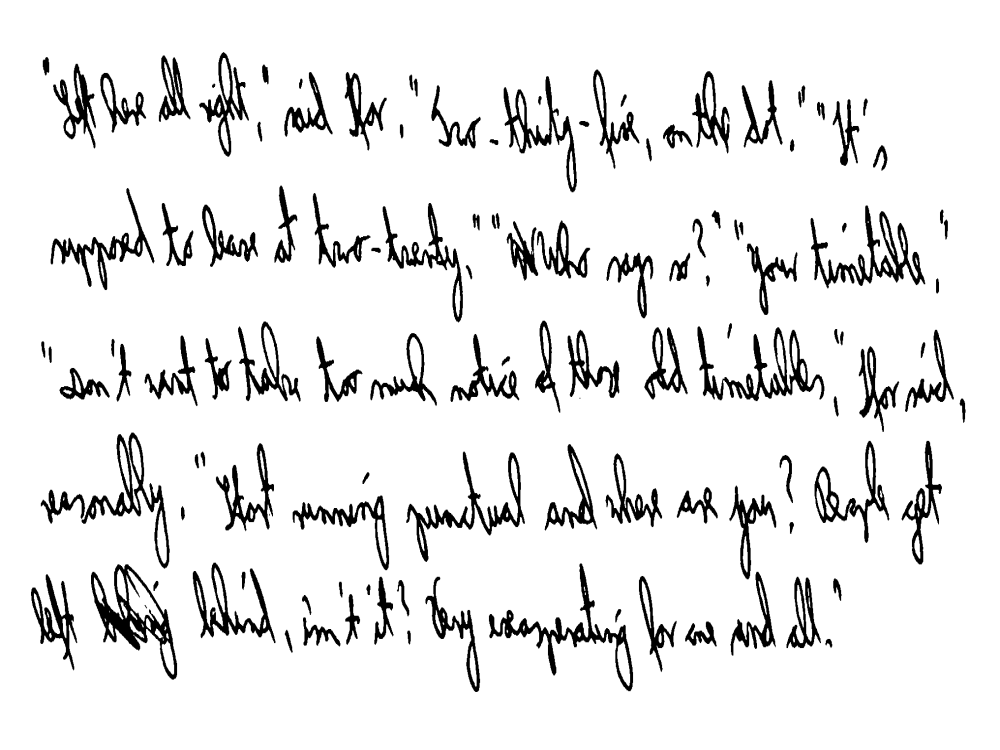 "Left here all right," said Ifor. "Two-thirty-five, on the dot." "It's
supposed to leave at two-twenty." "Who says so?" "Your timetable."
"Don't want to take too much notice of those old timetables," Ifor said,
reasonably. "Start running punctual and where are you? People get
left behind, isn't it? Very exasperating for one and all."